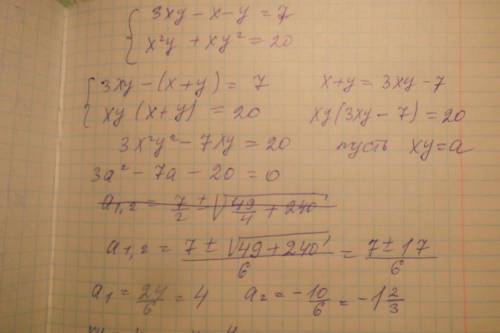 { 3xy - x - y = 7
x²y + xy² = 20
{ 3xy - (x + y) = 7 x + y = 3xy - 7
xy (x + y) = 20 xy(3xy - 7) = 20
3x²y² - 7xy = 20 пусть xy = a
3a² - 7a - 20 = 0
a₁,₂ = 7/2 ± √(49/4 + 240)
a₁,₂ = (7 ± √(49 + 240))/6 = (7 ± 17)/6
a₁ = 24/6 = 4 a₂ = -10/6 = -1 2/3